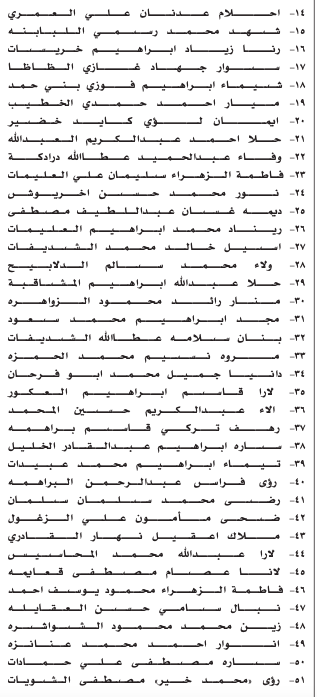 ١٤- احلام عدنان علي العمري
١٥- شهد محمد رسمي اللبابنه
١٦- رنا زياد ابراهيم خريسات
١٧- سوار جهاد غازي الظاظا
١٨- شيماء ابراهيم فوزي بني حمد
١٩- ميار احمد حمدي الخطيب
٢٠- ايمان لؤي كايد خضير
٢١- حلا احمد عبدالكريم العبدالله
٢٢- وفاء عبدالحميد عطاالله درادكة
٢٣- فاطمة الزهراء سليمان علي العليمات
٢٤- نور محمد حسن اخريوش
٢٥- ديمه غسان عبداللطيف مصطفى
٢٦- ريناد محمد ابراهيم العليمات
٢٧- اسيل خالد محمد الشديفات
٢٨- ولاء محمد سالم الدلابيح
٢٩- حلا عبدالله ابراهيم المشاقبة
٣٠- منار رائد محمود الزواهره
٣١- مجد ابراهيم محمد سعود
٣٢- بنان سلامه عطاالله الشديفات
٣٣- مروه نسيم محمد الحمزه
٣٤- دانيا جميل محمد ابو فرحان
٣٥- لارا قاسم ابراهيم العكور
٣٦- الاء عبدالكريم حسين المحمد
٣٧- رهف تركي قاسم براهمه
٣٨- ساره ابراهيم عبدالقادر الخليل
٣٩- تيماء ابراهيم محمد عبيدات
٤٠- رؤى فراس عبدالرحمن البراهمه
٤١- رضى محمد سلمان سلمان
٤٢- ضحى مأمون علي الزغول
٤٣- ملاك اعقيل نهار القادري
٤٤- لارا عبدالله محمد المحاسيس
٤٥- لانا عصام مصطفى قعايمه
٤٦- فاطمة الزهراء محمود يوسف احمد
٤٧- نبال سامي حسن العقايله
٤٨- زين محمد محمود الشواشره
٤٩- انوار احمد محمد عنانزه
٥٠- ساره مصطفى علي حمادات
٥١- رؤى «محمد خير» مصطفى الشويات